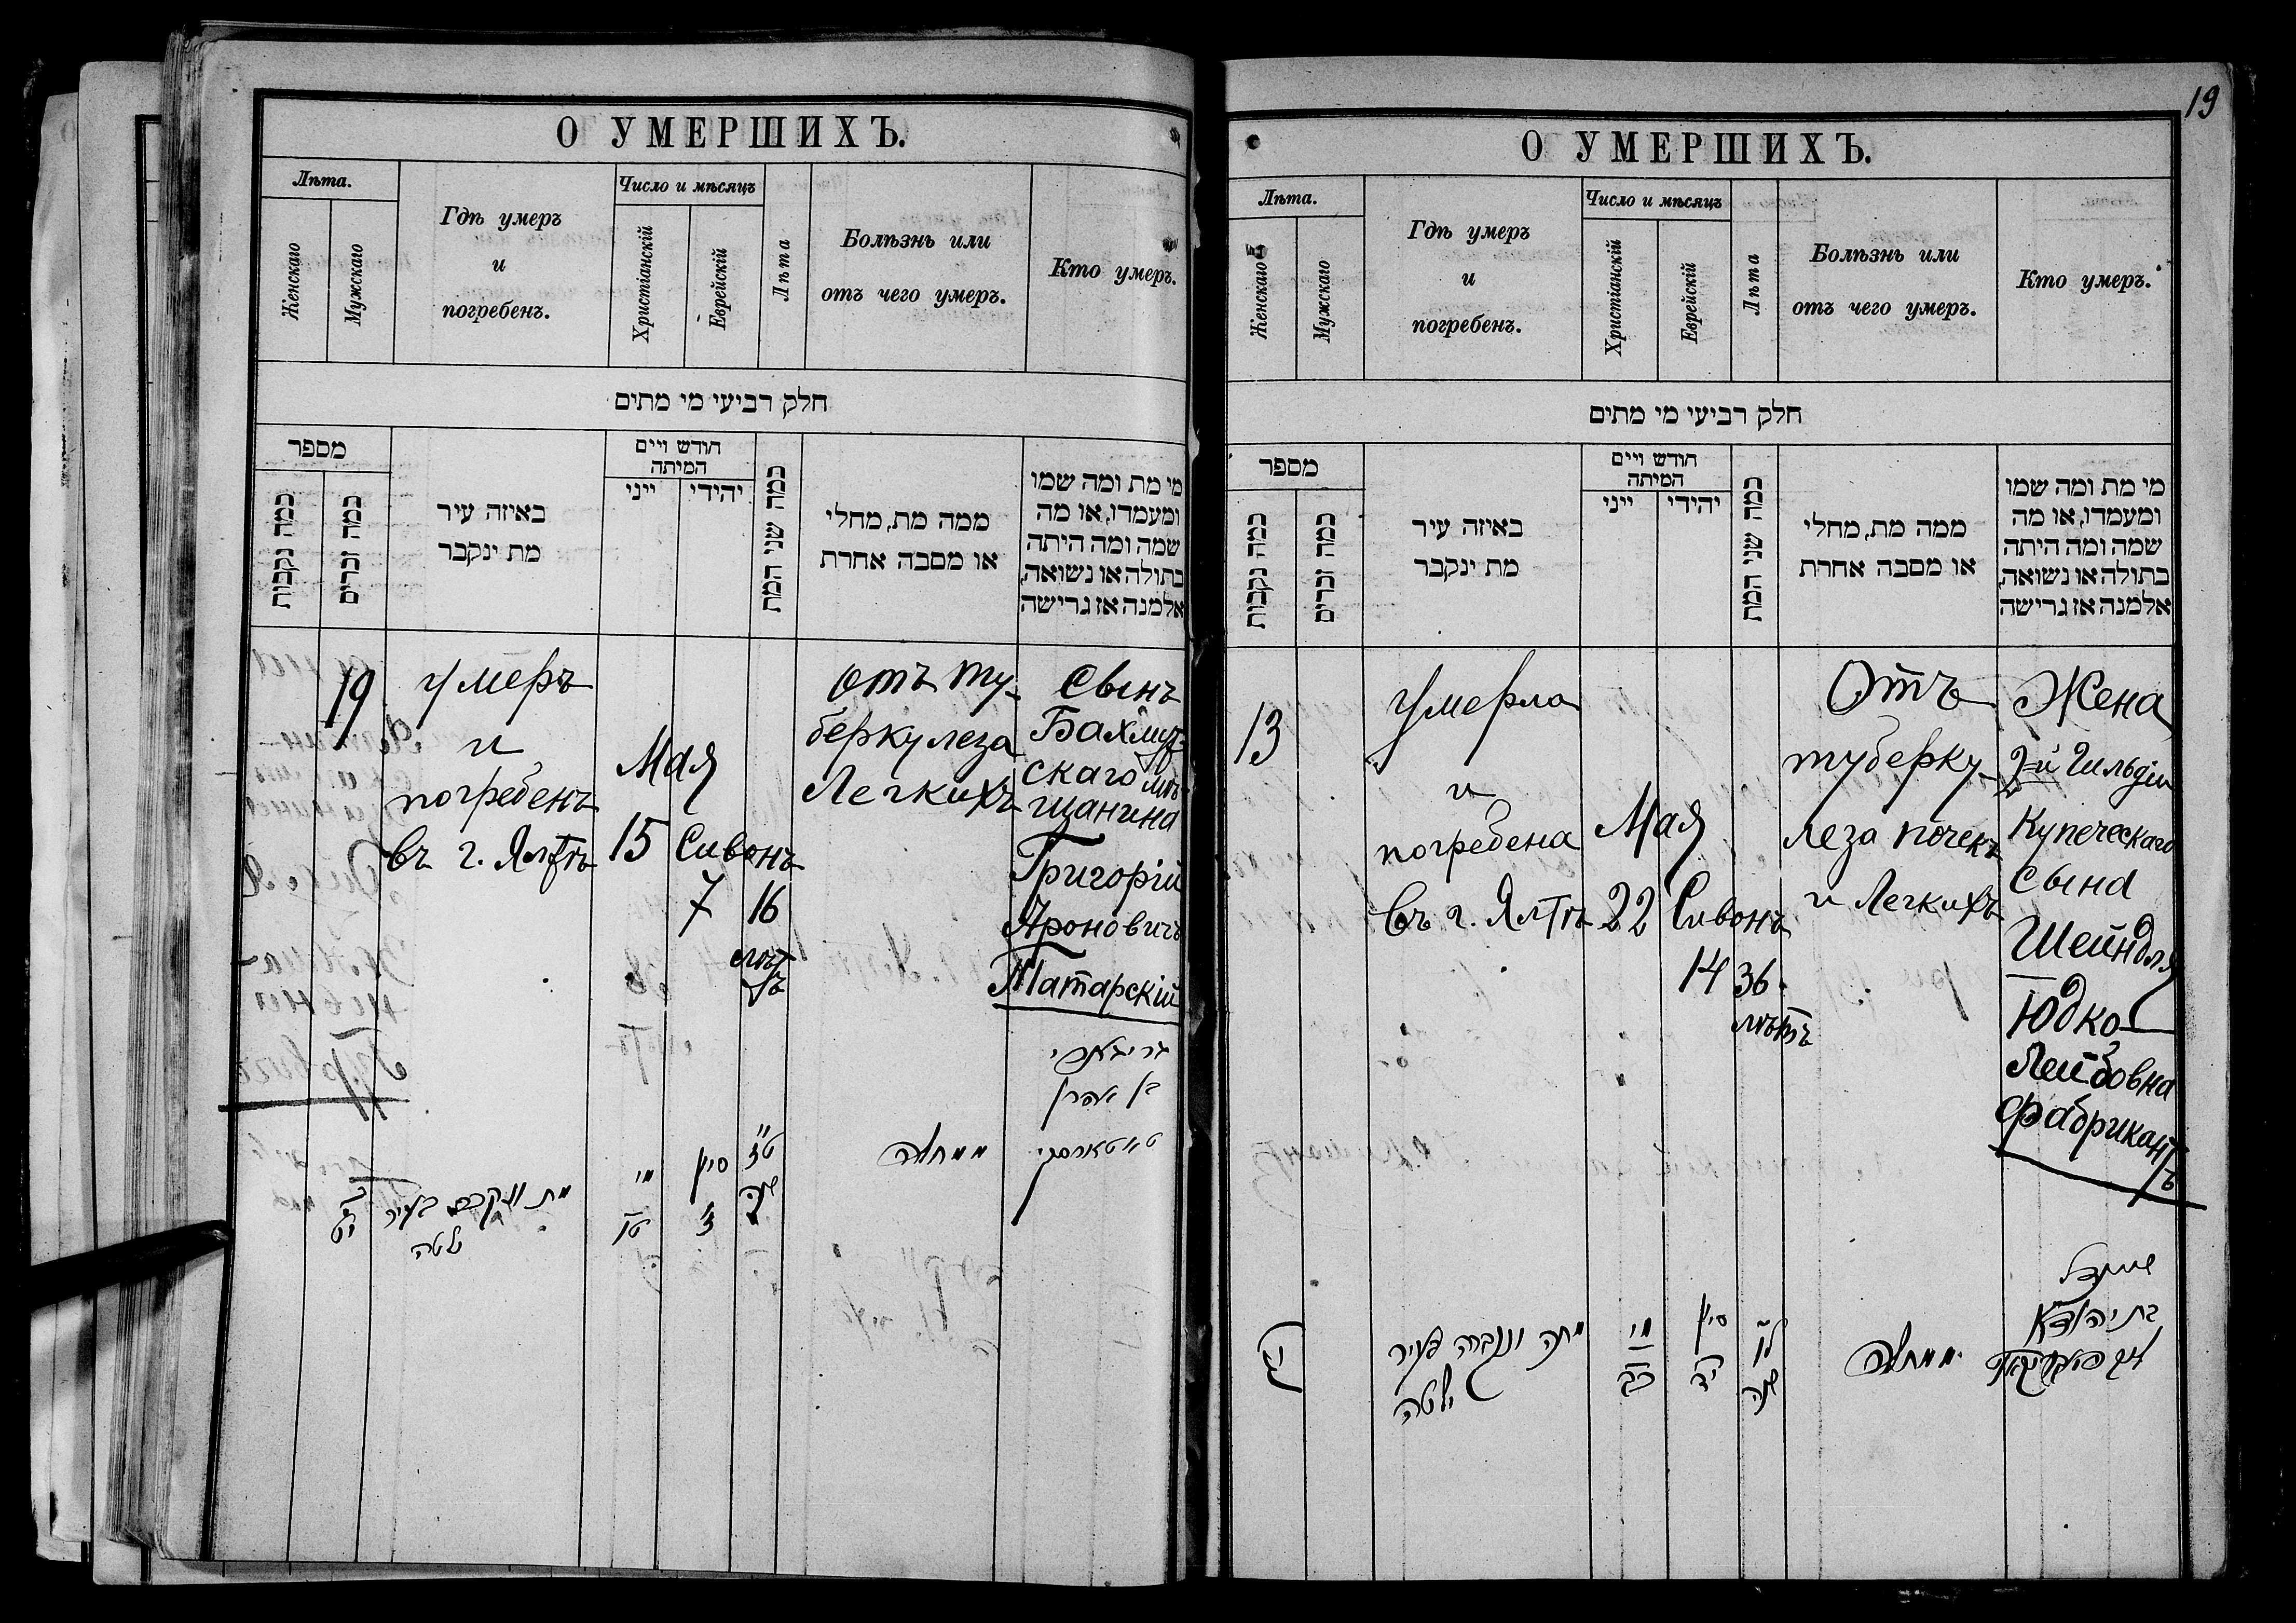 19
О УМЕРШИХЪ.
Лѣта.
Женскаго
Мужскаго
Гдѣ умеръ
и
погребенъ.
Число и мѣсяцъ
Христіанскій
Еврейскій
Лѣта
Болѣзнь или
отъ чего умеръ.
Кто умеръ.
חלק רביעי מי מתים
מספר
כמה נקבות
כמה זכרים
באיזה עיר
מת ינקבר
חודש ויים
המיתה
ייני
יהידי
כמה שני המת
ממה מת, מחלי
או מסבה אחרת
מי מת ומה שמו
ומעמדו, או מה
שמה ומה היתה
בתולה או נשואה,
אלמנה אז גרישה
19
умеръ
и
погребенъ
въ г. Ялтѣ
Мая
15
Сивонъ
7
16
лѣтъ
отъ ту-
беркулеза
Легкихъ
Сынъ
Бахмут-
скаго мѣ-
щанина
Григорій
Ароновичъ
Татарскій
בן אהרן
טאטארסקי
ממחלה
ט״ז
שנה
סיון
ז׳
מיי
ט״ו
מת ונקבר בעיר
ילטה
יט
О УМЕРШИХЪ.
Лѣта.
Женскаго
Мужскаго
Гдѣ умеръ
и
погребенъ.
Число и мѣсяцъ
Христіанскій
Еврейскій
Лѣта
Болѣзнь или
отъ чего умеръ.
Кто умеръ.
חלק רביעי מי מתים
מספר
כמה נקבות
כמה זכרים
באיזה עיר
מת ינקבר
חודש ויים
המיתה
ייני
יהידי
כמה שני המת
ממה מת, מחלי
או מסבה אחרת
מי מת ומה שמו
ומעמדו, או מה
שמה ומה היתה
בתולה או נשואה,
אלמנה אז גרישה
13
Умерла
и
погребена
въ г. Ялтѣ
Мая
22
Сивонъ
14
36
лѣтъ
Отъ
туберку-
леза почекъ
и Легкихъ
Жена
2-й Гильдіи
Купеческаго
сына
Шейндля
Юдко-
Лейбовна
Фабрикантъ
שיינדל
בת יהודא
ליב פאבריקאנט
ממחלה
ל״ו
שנה
סיון
י״ד
מיי
כב
מתה ונקברה בעיר
ילטה
יג